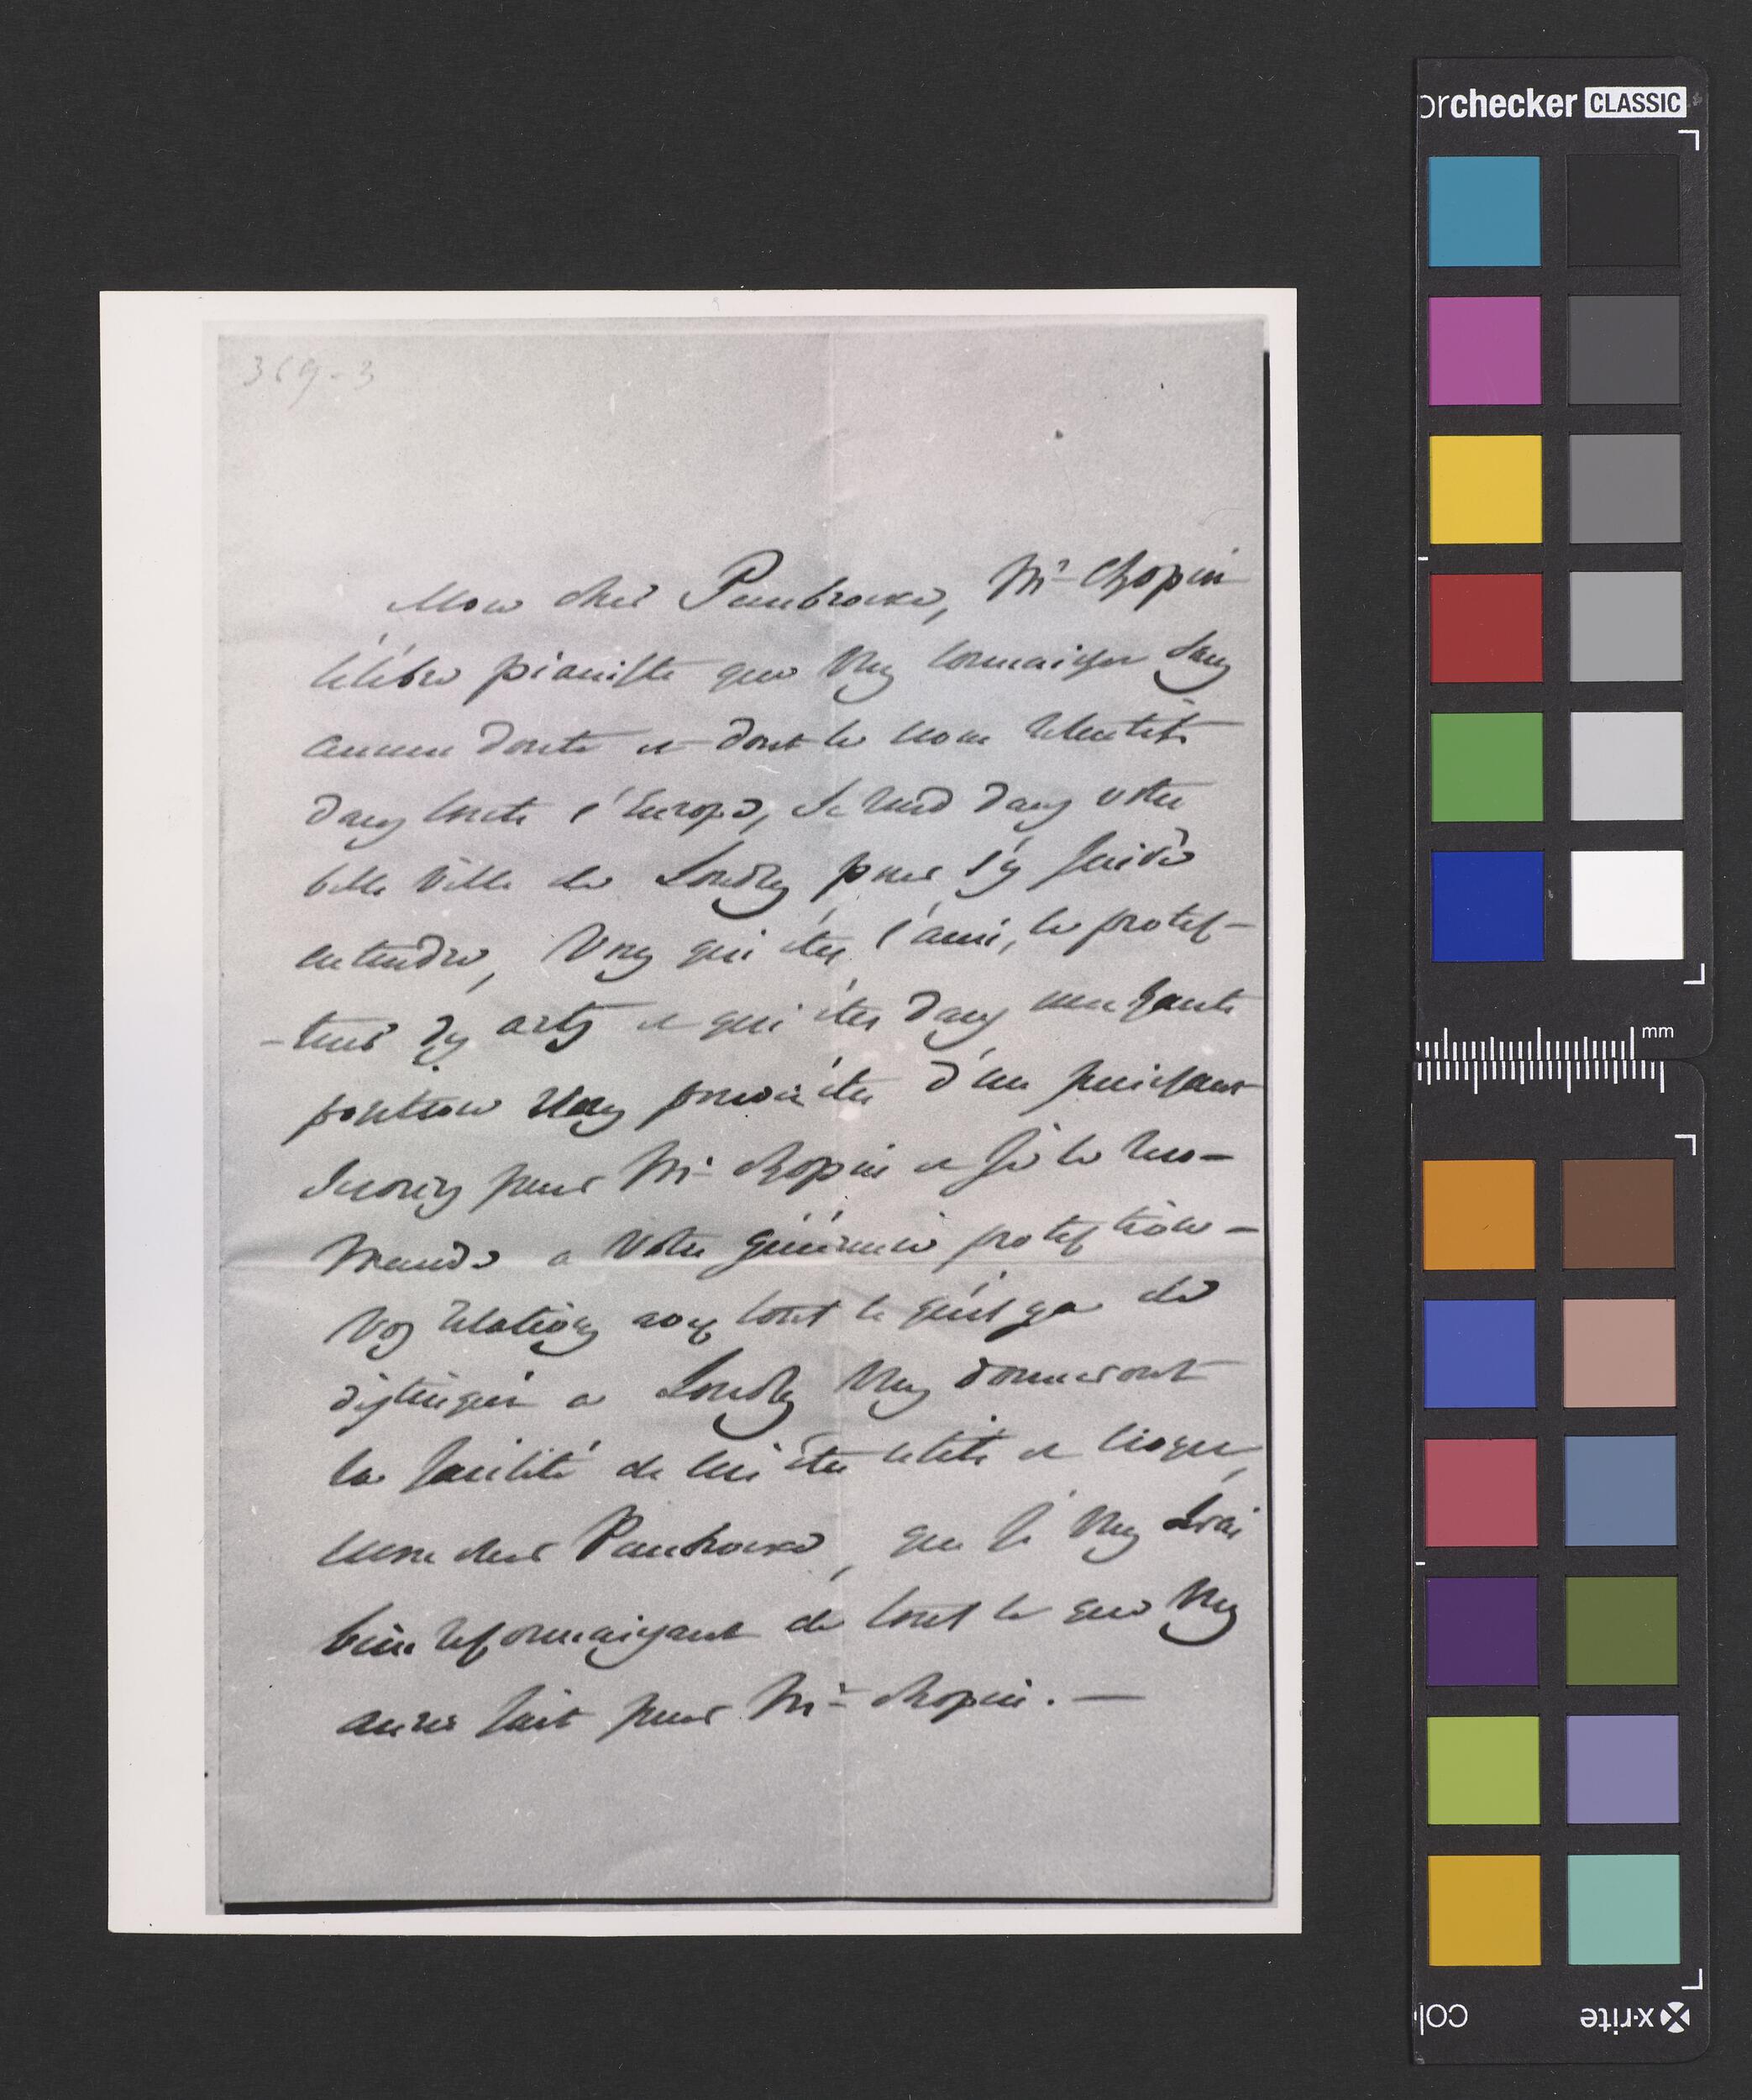 369-3
Mon cher Panofka, Mr Chopin
célébre pianiste que vous connaissez sans
aucun doute et dont le nom retentit
dans toute l'Europe, se rend dans votre
belle ville de Londres pour s'y faire
entendre, Vous qui êtes l'ami, le protec-
-teur des arts et qui êtes dans une haute
position vous pouvez être d'un puissant
secours pour Mr Chopin et je le reco-
mmande a votre protection -
Vos relations avec tout ce qu'il y a de
distingué a Londres vous donneront
la facilité de lui être utile et croyez,
mon cher Panofka, que je vous serai
bien reconnaissant de tout ce que vous
aurez fait pour Mr Chopin. —
orchecker CLASSIC
mm
x-rite
colo